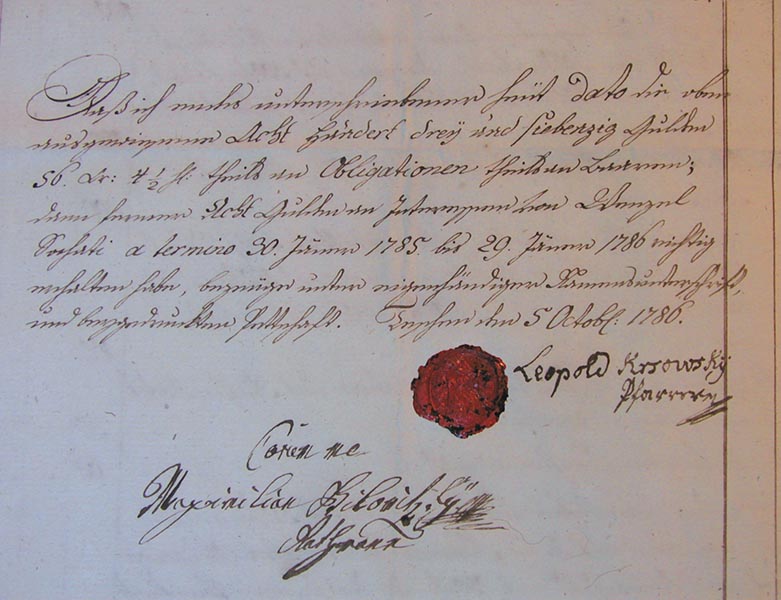 Daß ich endes unterschriebener heüt dato die oben
ausgewiesene Acht Hündert drey und siebenzig Gulden
56. Kr: 4 1/2 hl: theils an Obligationen theils an Baaren;
dann ferner Acht Gulden an Interessen von Wenzel
Sochati a termino 30. Jäner 1785. bis 29. Jäner 1786 richtig
erhalten habe, bezeüge unter eigenhändiger Namensunterschrift,
und beygedruckten Pettschaft. Teschen den 5 Octobl: 1786.
Leopold Krsowský
Pfarrer
Coram me
Maximilian
Rathmann